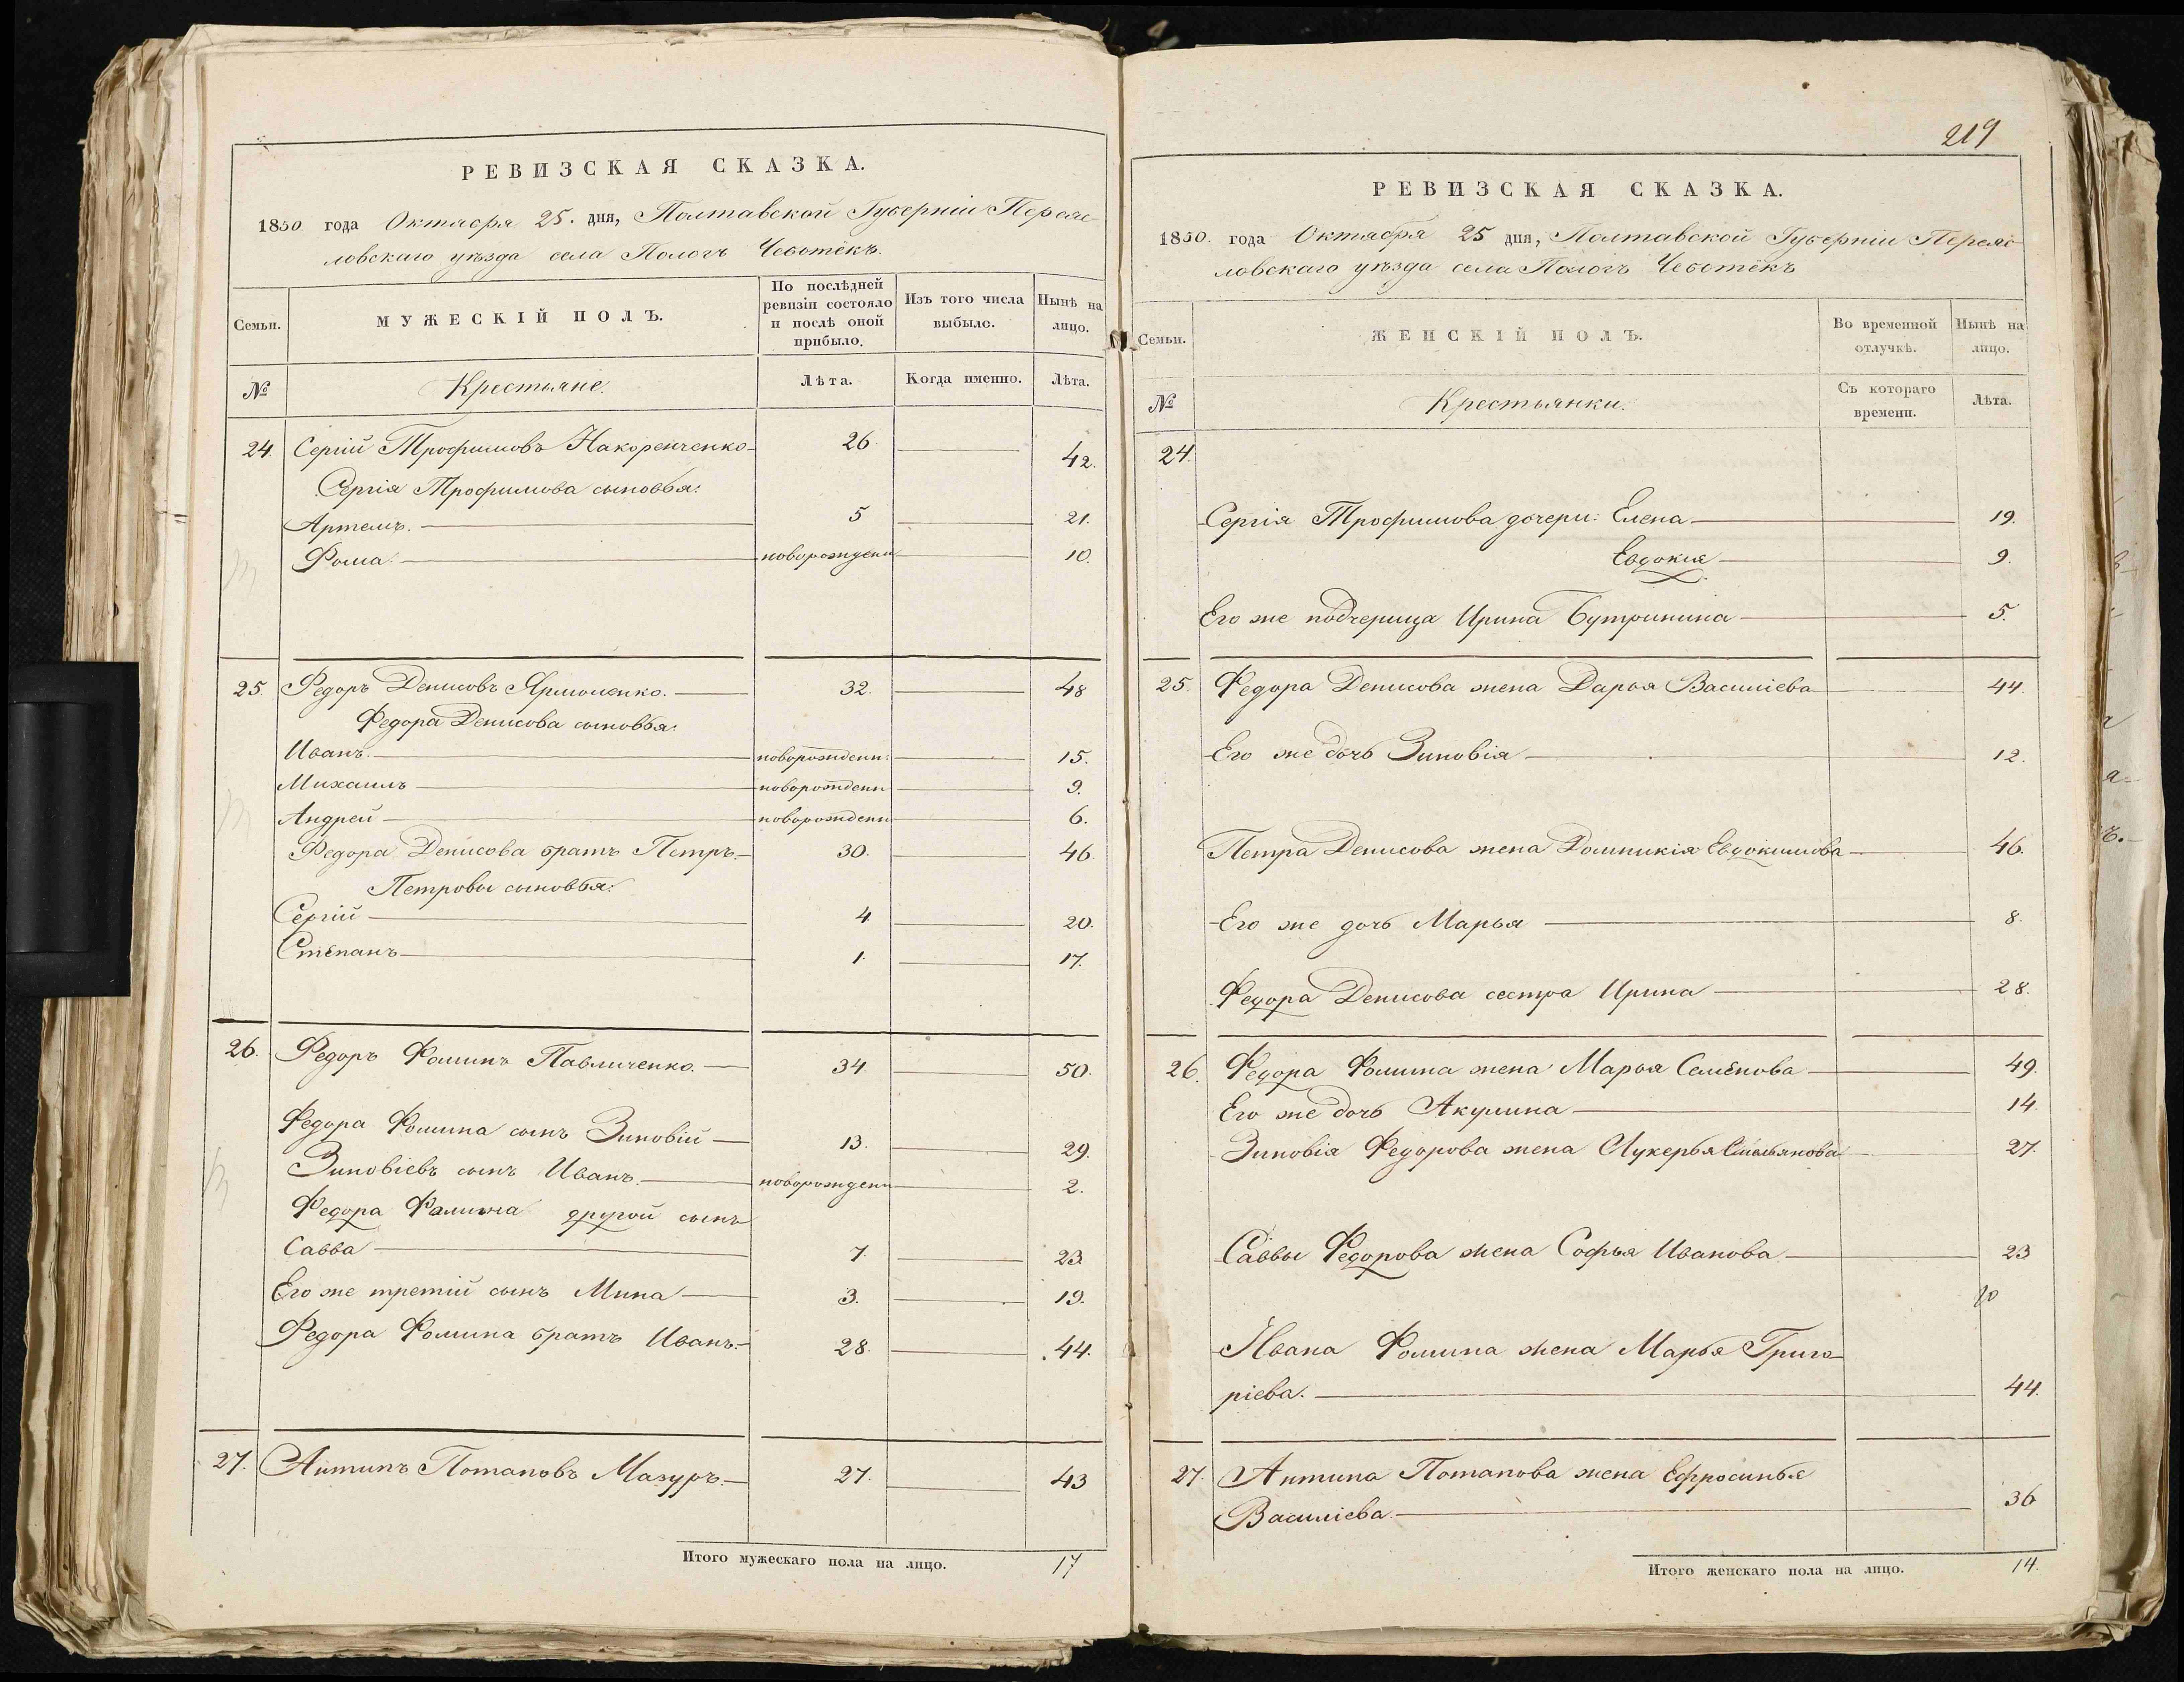 РЕВИЗСКАЯ СКАЗКА.
1850 года Октября 25. дня, Полтавской Губерніи Переяс-
ловскаго уѣзда села Пологъ Чеботёкъ.
Семьи. МУЖЕСКІЙ ПОЛЪ. По послѣдней ревизіи состояло и послѣ оной прибыло. Изъ того числа выбыло. Нынѣ на лицо.
№ Крестьяне. Лѣта. Когда именно. Лѣта.
24. Сергій Трофимовъ Накоренченко 26 42.
Сергія Трофимова сыновья:
Артемъ. 5 21.
Фома. новорожден 10.
25. Федоръ Денисовъ Ярмоленко. 32. 48
Федора Денисова сыновья:
Иванъ. новорожденн: 15.
Михаилъ новорожденн 9.
Андрей новорожденн 6.
Федора Денисова братъ Петръ. 30. 46.
Петровы сыновья:
Сергій 4 20.
Степанъ 1. 17.
26. Федоръ Фоминъ Павличенко. 34 50.
Федора Фомина сынъ Зиновій 13. 29.
Зиновіевъ сынъ Иванъ. новорожденн 2.
Федора Фомина другой сынъ
Савва 7. 23.
Его же третій сынъ Мина 3. 19.
Федора Фомина братъ Иванъ. 28. 44.
27. Антипъ Потаповъ Мазуръ. 27. 43
Итого мужескаго пола на лицо. 17
219
РЕВИЗСКАЯ СКАЗКА.
1850. года Октября 25 дня, Полтавской Губерніи Переяс
ловскаго уѣзда села Пологъ Чеботёкъ
Семьи. ЖЕНСКІЙ ПОЛЪ. Во временной отлучкѣ. Нынѣ на лицо.
№ Крестьянки. Съ котораго времени. Лѣта.
24.
Сергія Трофимова дочери: Елена 19.
Евдокія 9.
Его же подчерица Ирина 5.
25. Федора Денисова жена Дарья Василіева 44.
Его же дочь Зиновія 12.
Петра Денисова жена Домникія Евдокимова 46.
Его же дочь Марья 8.
Федора Денисова сестра Ирина 28.
26. Федора Фомина жена Марья Семёнова 49.
Его же дочь Акулина 14.
Зиновія Федорова жена Лукерья 27.
Саввы Федорова жена Софья Иванова 23
Ивана Фомина жена Марья Григо-
ріева. 44.
27. Антипа Потапова жена Ефросинья
Василіева. 36
Итого женскаго пола на лицо. 14.